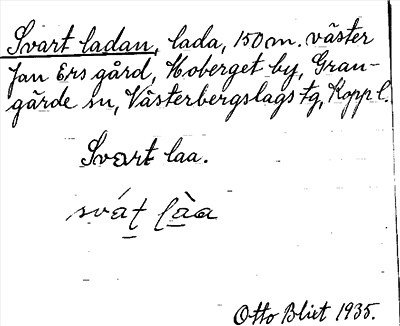 Svartladan, lada, 150 m. väster
Jan Ers gård, Hoberget by, Gran-
gärde sn, Västerbergslags tg, Kopp l.
Svart laa.
Otto Blixt 1935.